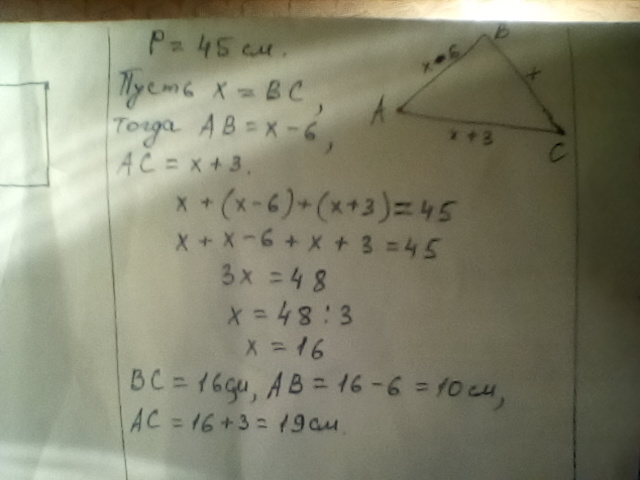 P = 45 см.
Пусть x = BC,
тогда AB = x - 6,
AC = x + 3.
x + (x - 6) + (x + 3) = 45
x + x - 6 + x + 3 = 45
3x = 48
x = 48 : 3
x = 16
BC = 16 см, AB = 16 - 6 = 10 см,
AC = 16 + 3 = 19 см.
B
x - 6
x
A
x + 3
C